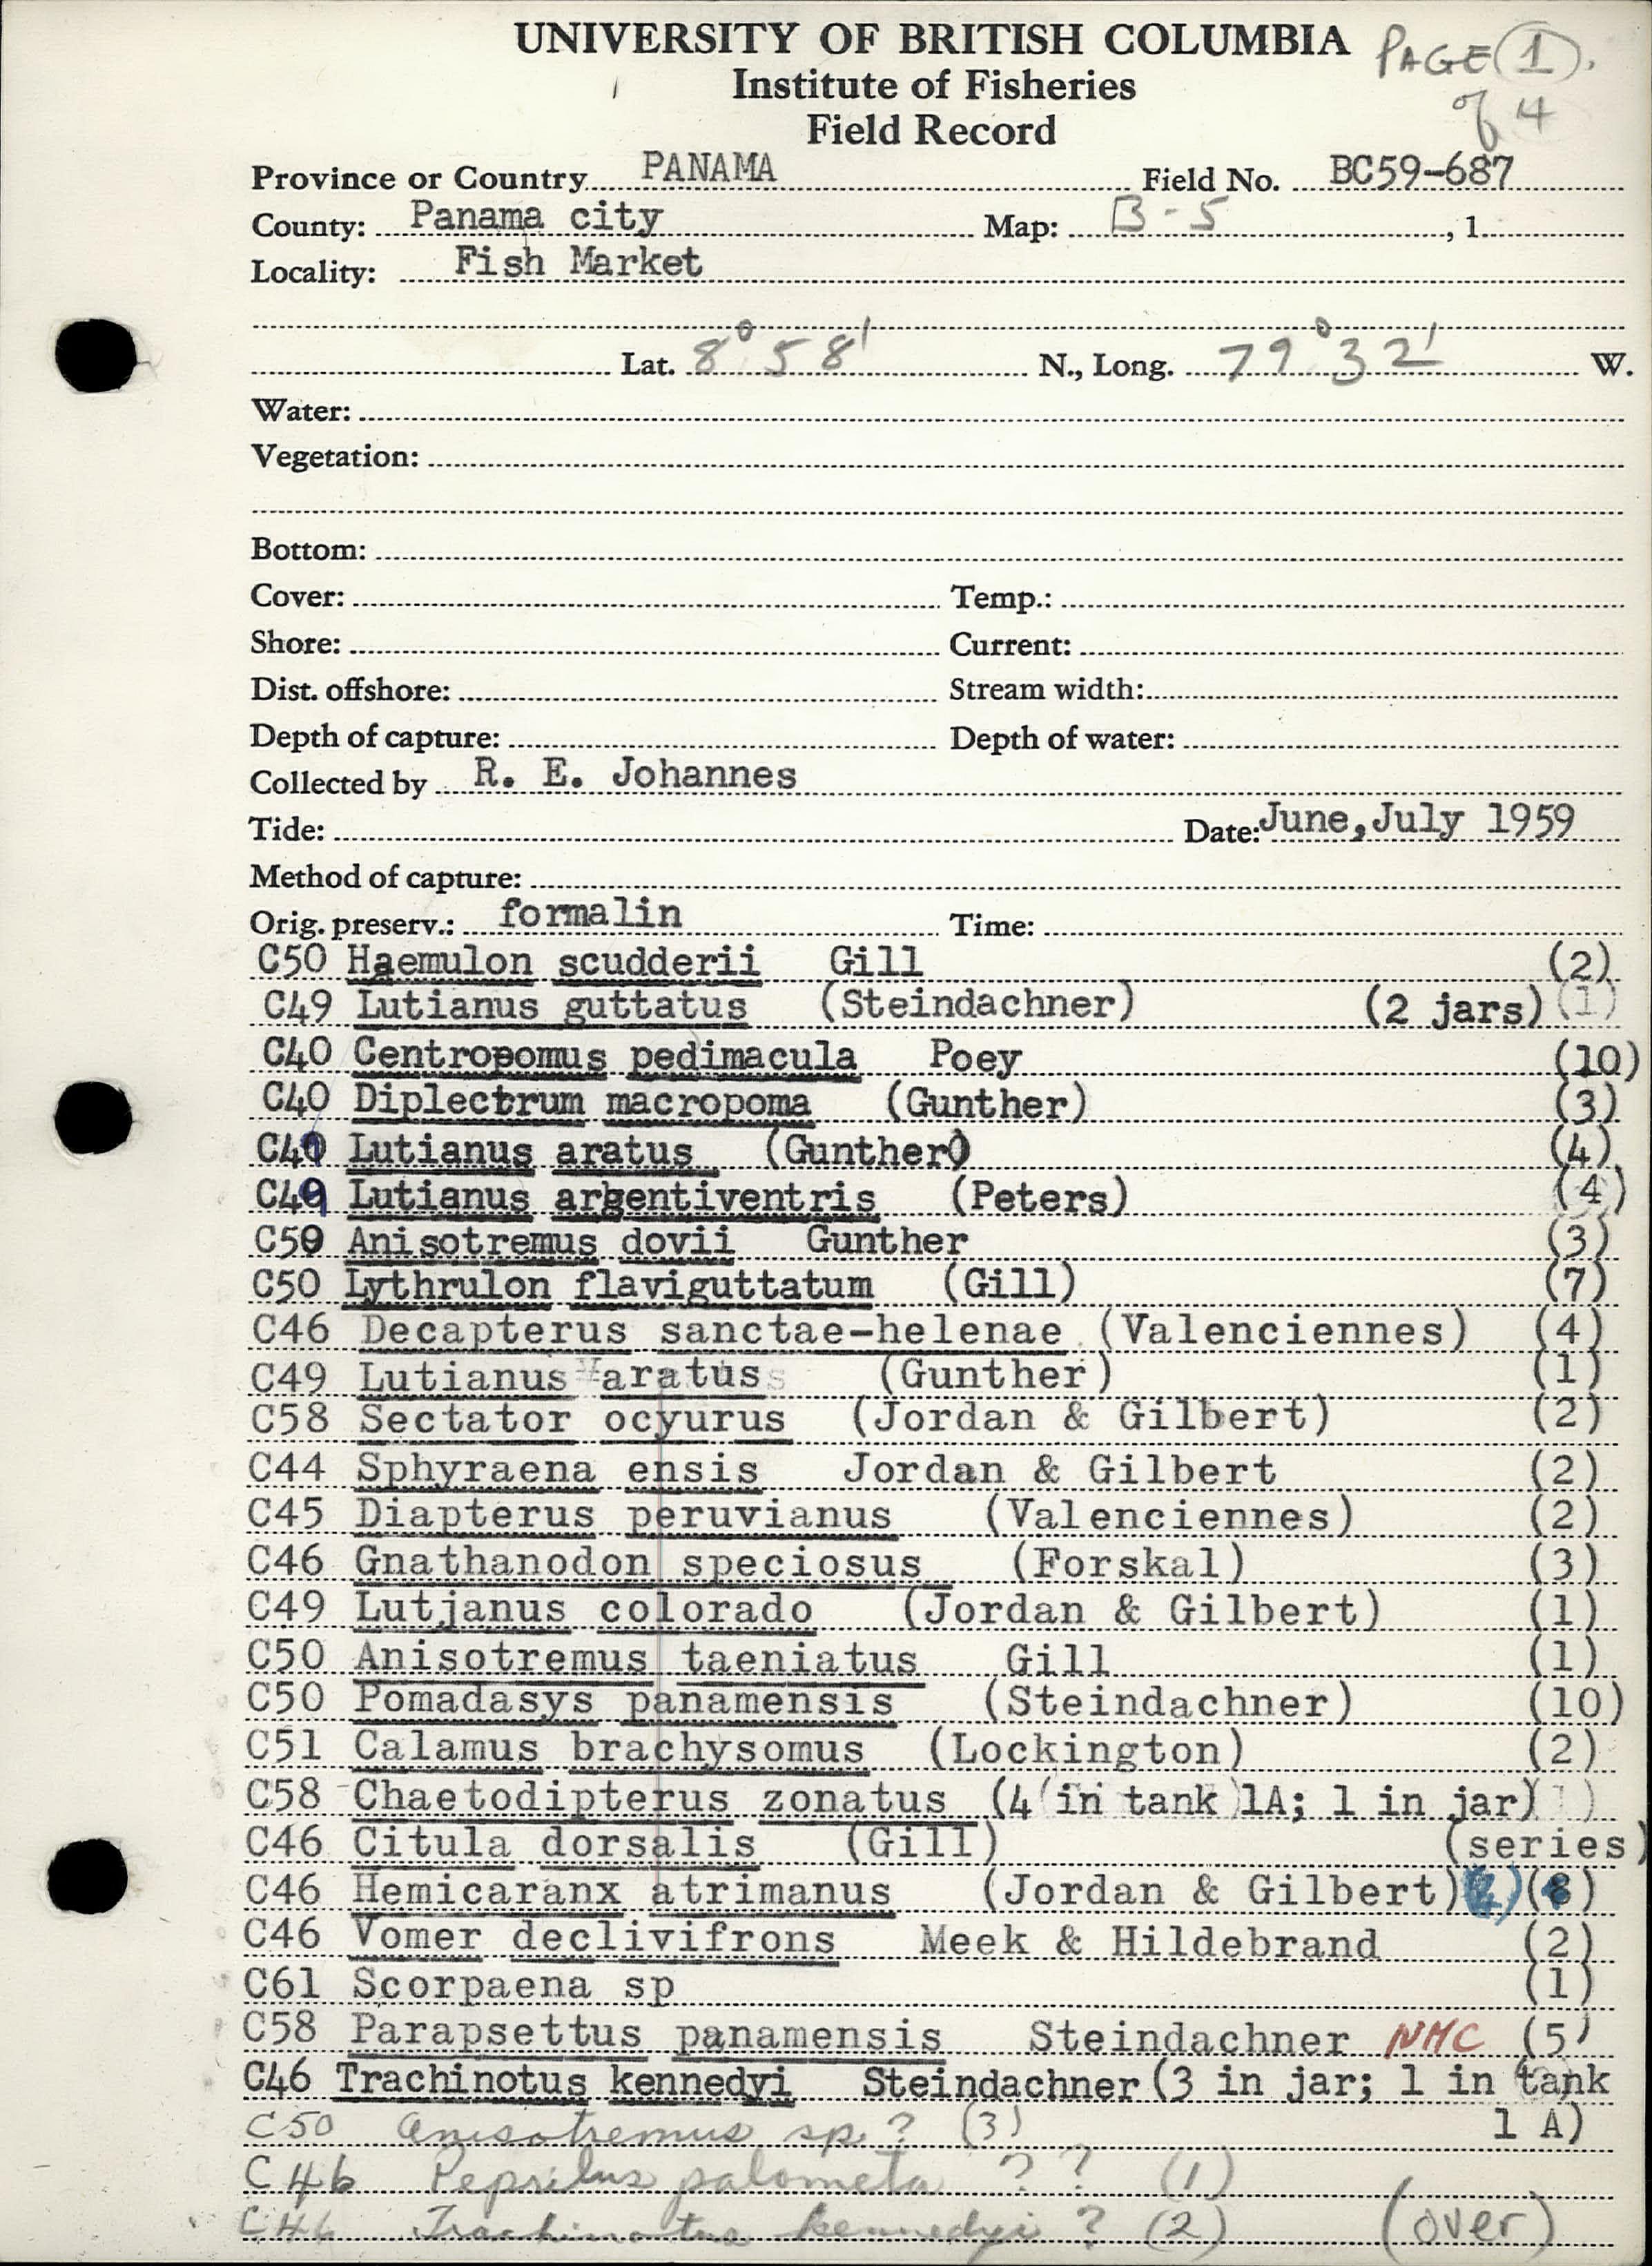 UNIVERSITY OF BRITISH COLUMBIA PAGE 1.
Institute of Fisheries of 4
Field Record
Province or Country PANAMA Field No. BC59-687
County: Panama city Map: B-5, 1
Locality: Fish Market
Lat. 8° 58' N., Long. 79° 32' W.
Water:
Vegetation:
Bottom:
Cover: Temp.:
Shore: Current:
Dist. offshore: Stream width:
Depth of capture: Depth of water:
Collected by R. E. Johannes
Tide: Date: June, July 1959
Method of capture:
Orig. preserv.: formalin Time:
C50 Haemulon scudderii Gill (2)
C49 Lutianus guttatus (Steindachner) (2 jars) (1)
C40 Centropomus pedimacula Poey (10)
C40 Diplectrum macropoma (Gunther) (3)
C49 Lutianus aratus (Gunther) (4)
C49 Lutianus argentiventris (Peters) (4)
C50 Anisotremus dovii Gunther (3)
C50 Lythrulon flaviguttatum (Gill) (7)
C46 Decapterus sanctae-helenae (Valenciennes) (4)
C49 Lutianus aratus (Gunther) (1)
C58 Sectator ocyurus (Jordan & Gilbert) (2)
C44 Sphyraena ensis Jordan & Gilbert (2)
C45 Diapterus peruvianus (Valenciennes) (2)
C46 Gnathanodon speciosus (Forskal) (3)
C49 Lutjanus colorado (Jordan & Gilbert) (1)
C50 Anisotremus taeniatus Gill (1)
C50 Pomadasys panamensis (Steindachner) (10)
C51 Calamus brachysomus (Lockington) (2)
C58 Chaetodipterus zonatus (4 in tank 1A; 1 in jar)
C46 Citula dorsalis (Gill) (series)
C46 Hemicaranx atrimanus (Jordan & Gilbert)
C46 Vomer declivifrons Meek & Hildebrand (2)
C61 Scorpaena sp (1)
C58 Parapsettus panamensis Steindachner NMC (5)
C46 Trachinotus kennedyi Steindachner (3 in jar; 1 in tank
1 A)
C50 Anisotremus sp.? (3)
C46 Peprilus palometa ? ? (1)
C46 Trachinotus kennedyi ? (2) (over)